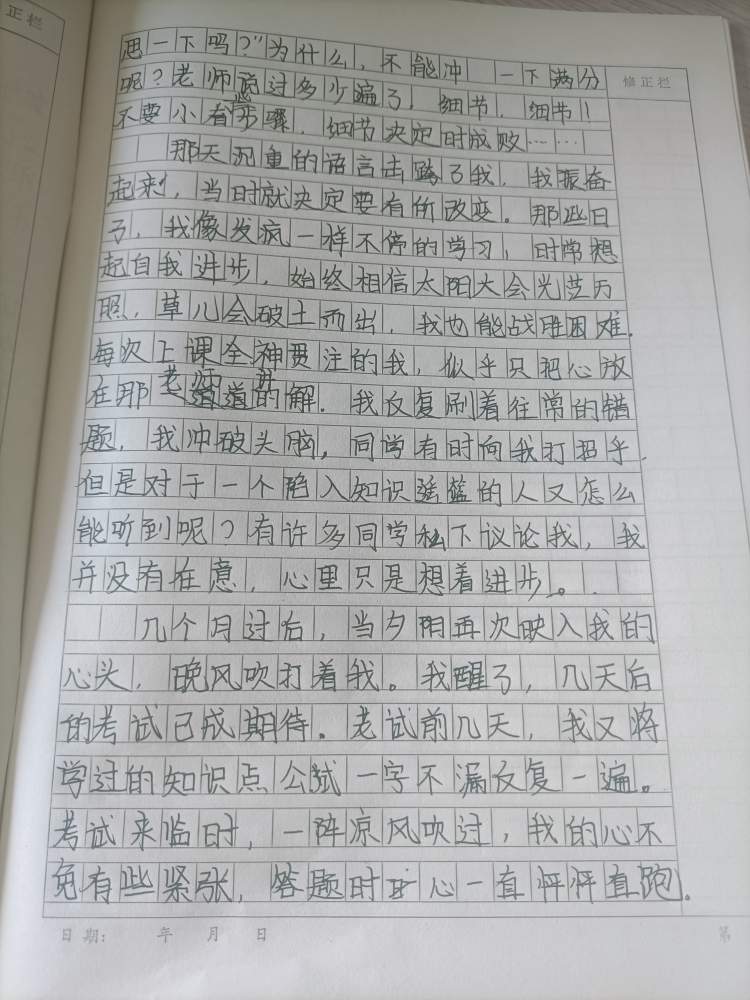 正栏
修正栏
思一下吗？”为什么，不能冲一下满分
呢？老师说过多少遍了，细节，细节！
不要小看步骤，细节决定时成败……
那天沉重的语言击跨了我，我振奋
起来，当时就决定要有所改变。那些日
子，我像发疯一样不停的学习，时常想
起自我进步，始终相信太阳大会光芒万
照，草儿会破土而出，我也能战胜困难.
每次上课全神贯注的我，似乎只把心放
老师 讲
在那 道道的解. 我反复刷着往常的错
题，我冲破头脑，同学有时向我打招乎.
但是对于一个陷入知识摇篮的人又怎么
能听到呢？有许多同学私下议论我，我
并没有在意，心里只是想着进步。
几个月过后，当夕阳再次映入我的
心头，晚风吹打着我。我醒了，几天后
的考试已成期待。考试前几天，我又将
学过的知识点公式一字不漏反复一遍。
考试来临时，一阵凉风吹过，我的心不
免有些紧张，答题时心一直怦怦直跑.
日期： 年 月 日
第